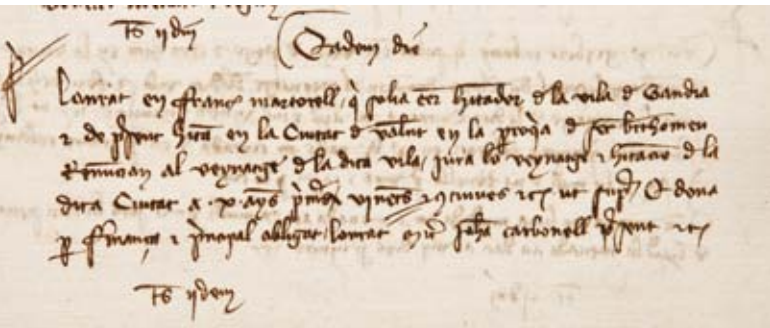 Ts ijdem
Eadem die
Lonrat en ffrances martorell q solia esser habitador d la vila d Gandia
e de present habita en la Ciutat d valent en la parroqia d sent berthomeu
Renuncian al veynatge d la dita vila jura lo veynatge e habitacio d la
dita Ciutat a .x. anys primers vinents e continues etc ut supra E dona
per fermança e principal obligat lonrat en Johan carbonell present etc
Ts ijdem